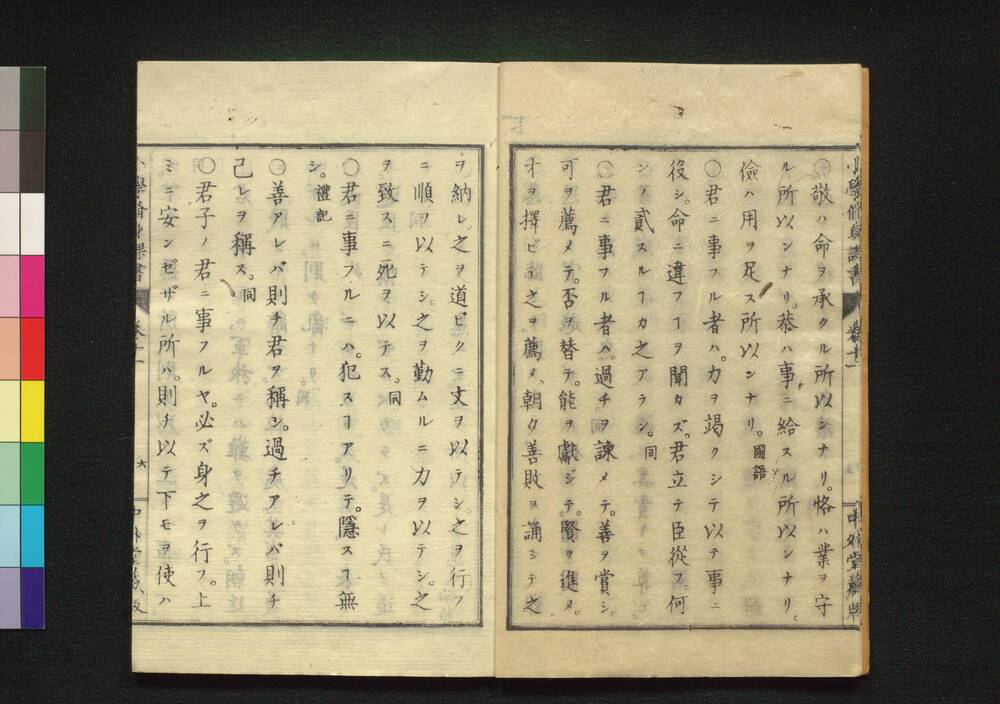 小學修身課書 卷十一 中外堂藏版
〇敬ハ命ヲ承クル所以ンナリ。恪ハ業ヲ守
ル所以ンナリ。恭ハ事ニ給スル所以ンナリ。
儉ハ用ヲ足ス所以ンナリ。國語
〇君ニ事フル者ハ。力ヲ竭クシテ以テ事ニ
役シ。命ニ違フヿヲ聞カズ。君立テ臣從フ。何
ンノ貳スルヿカ之アラン。同
〇君ニ事フル者ハ。過チヲ諫メテ。善ヲ賞シ。
可ヲ薦メテ。否ヲ替テ。能ヲ獻ジテ。賢ヲ進メ。
才ヲ擇ビテ之ヲ薦メ。朝夕善敗ヲ誦シテ之
ヲ納レ。之ヲ道ビクニ文ヲ以テシ。之ヲ行フ
ニ順ヲ以テシ。之ヲ勤ムルニ力ヲ以テシ。之
ヲ致スニ死ヲ以テス。同
〇君ニ事フルニハ。犯スヿアリテ。隱スヿ無
シ。禮記
〇善アレバ則チ君ヲ稱シ。過チアレバ則チ
己レヲ稱ス。同
〇君子ノ君ニ事フルヤ。必ズ身之ヲ行フ。上
ミニ安ンゼザル所ハ。則チ以テ下モヲ使ハ
小學修身課書 卷十一 六 中外堂藏版